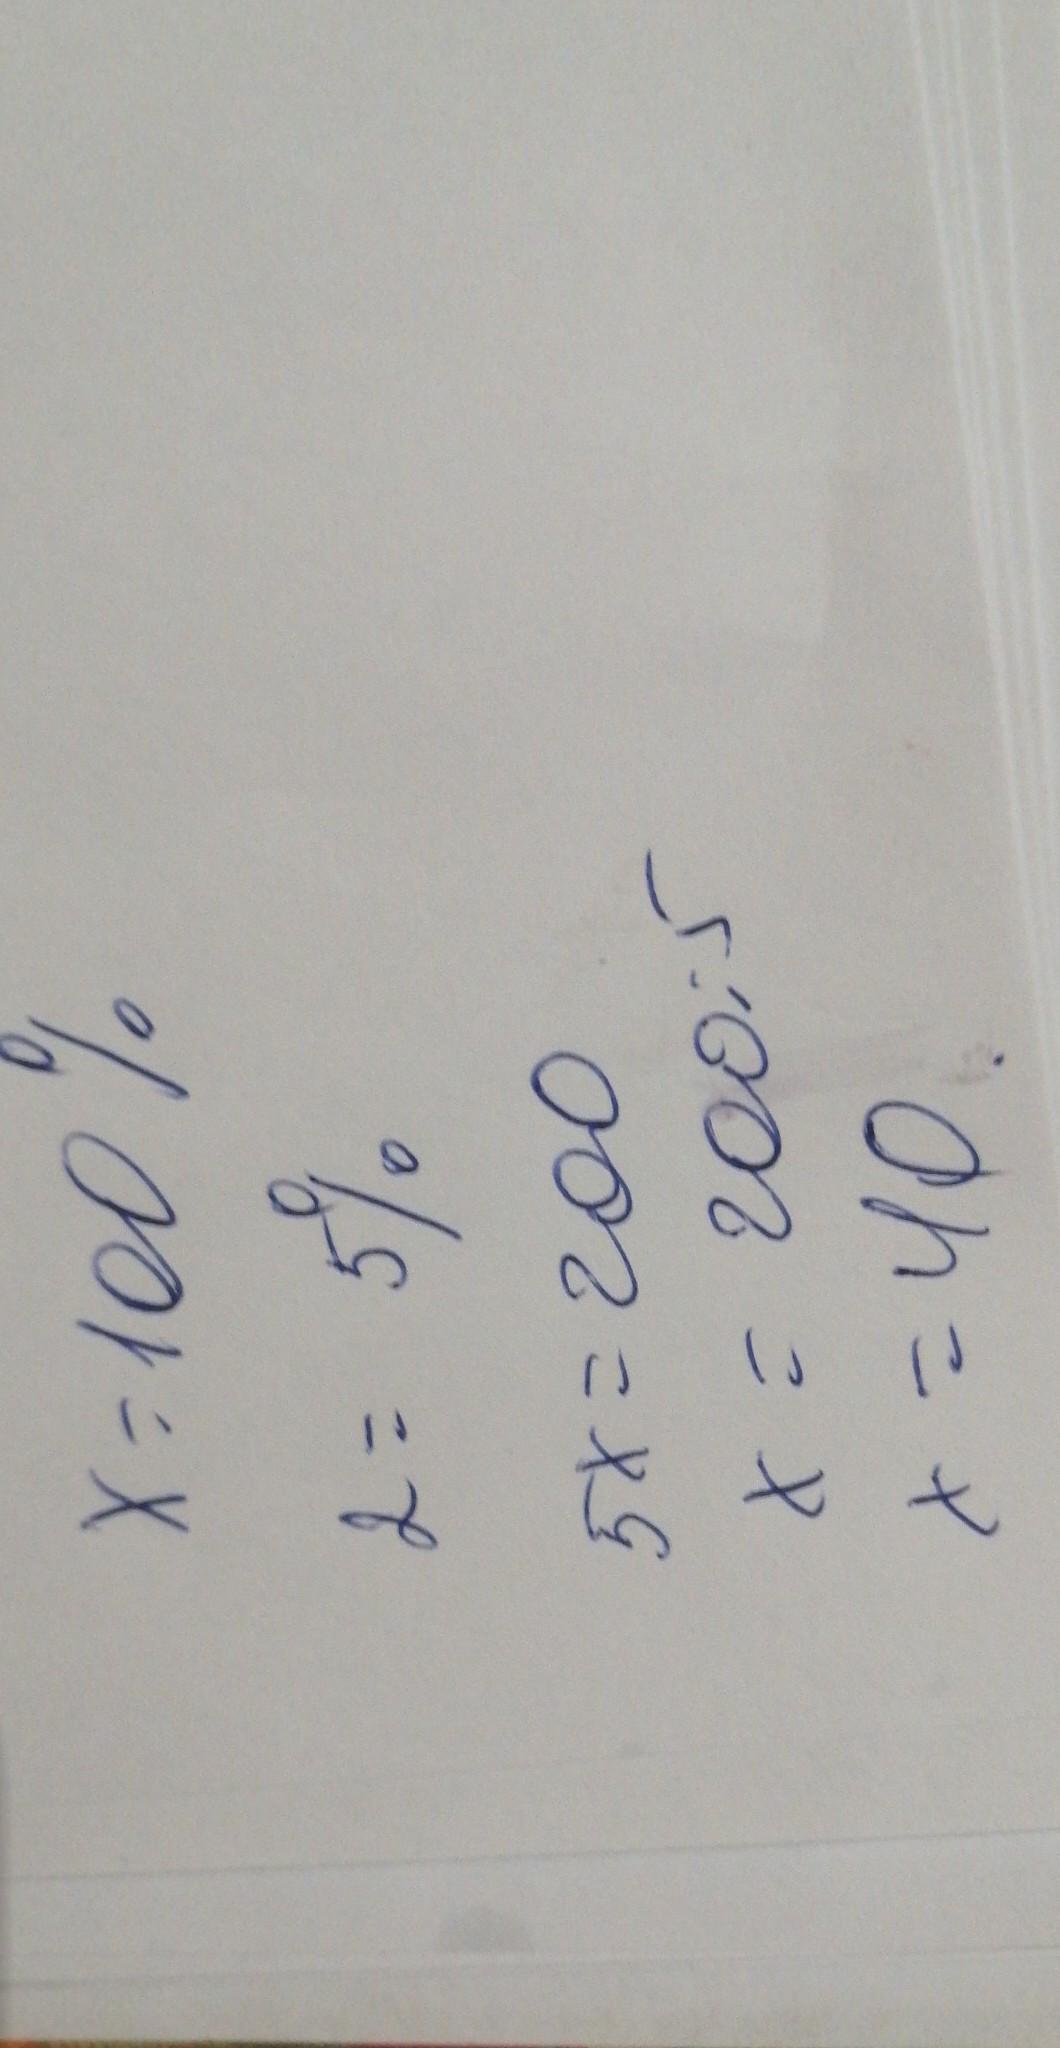 x=100%
2= 5%
5x=200
x= 200:5
x=40.